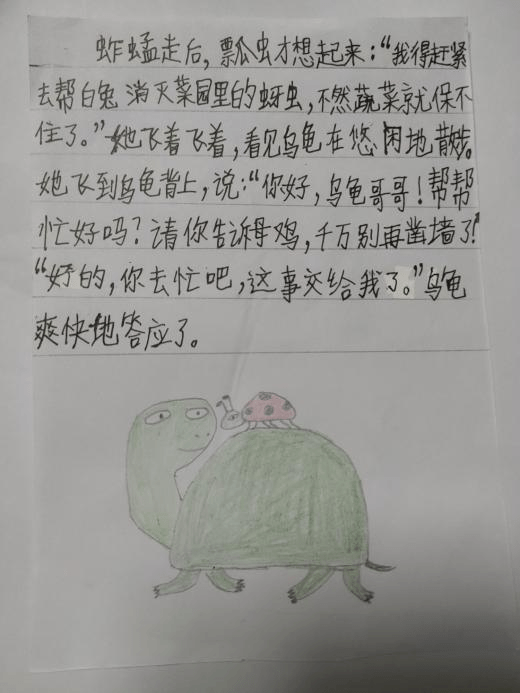 蚱蜢走后，瓢虫才想起来：“我得赶紧
去帮白兔消灭菜园里的蚜虫，不然蔬菜就保不
住了。”她飞着飞着，看见乌龟在悠闲地散步。
她飞到乌龟背上，说：“你好，乌龟哥哥！帮帮
忙好吗？请你告诉母鸡，千万别再凿墙了！”
“好的，你去忙吧，这事交给我了。”乌龟
爽快地答应了。